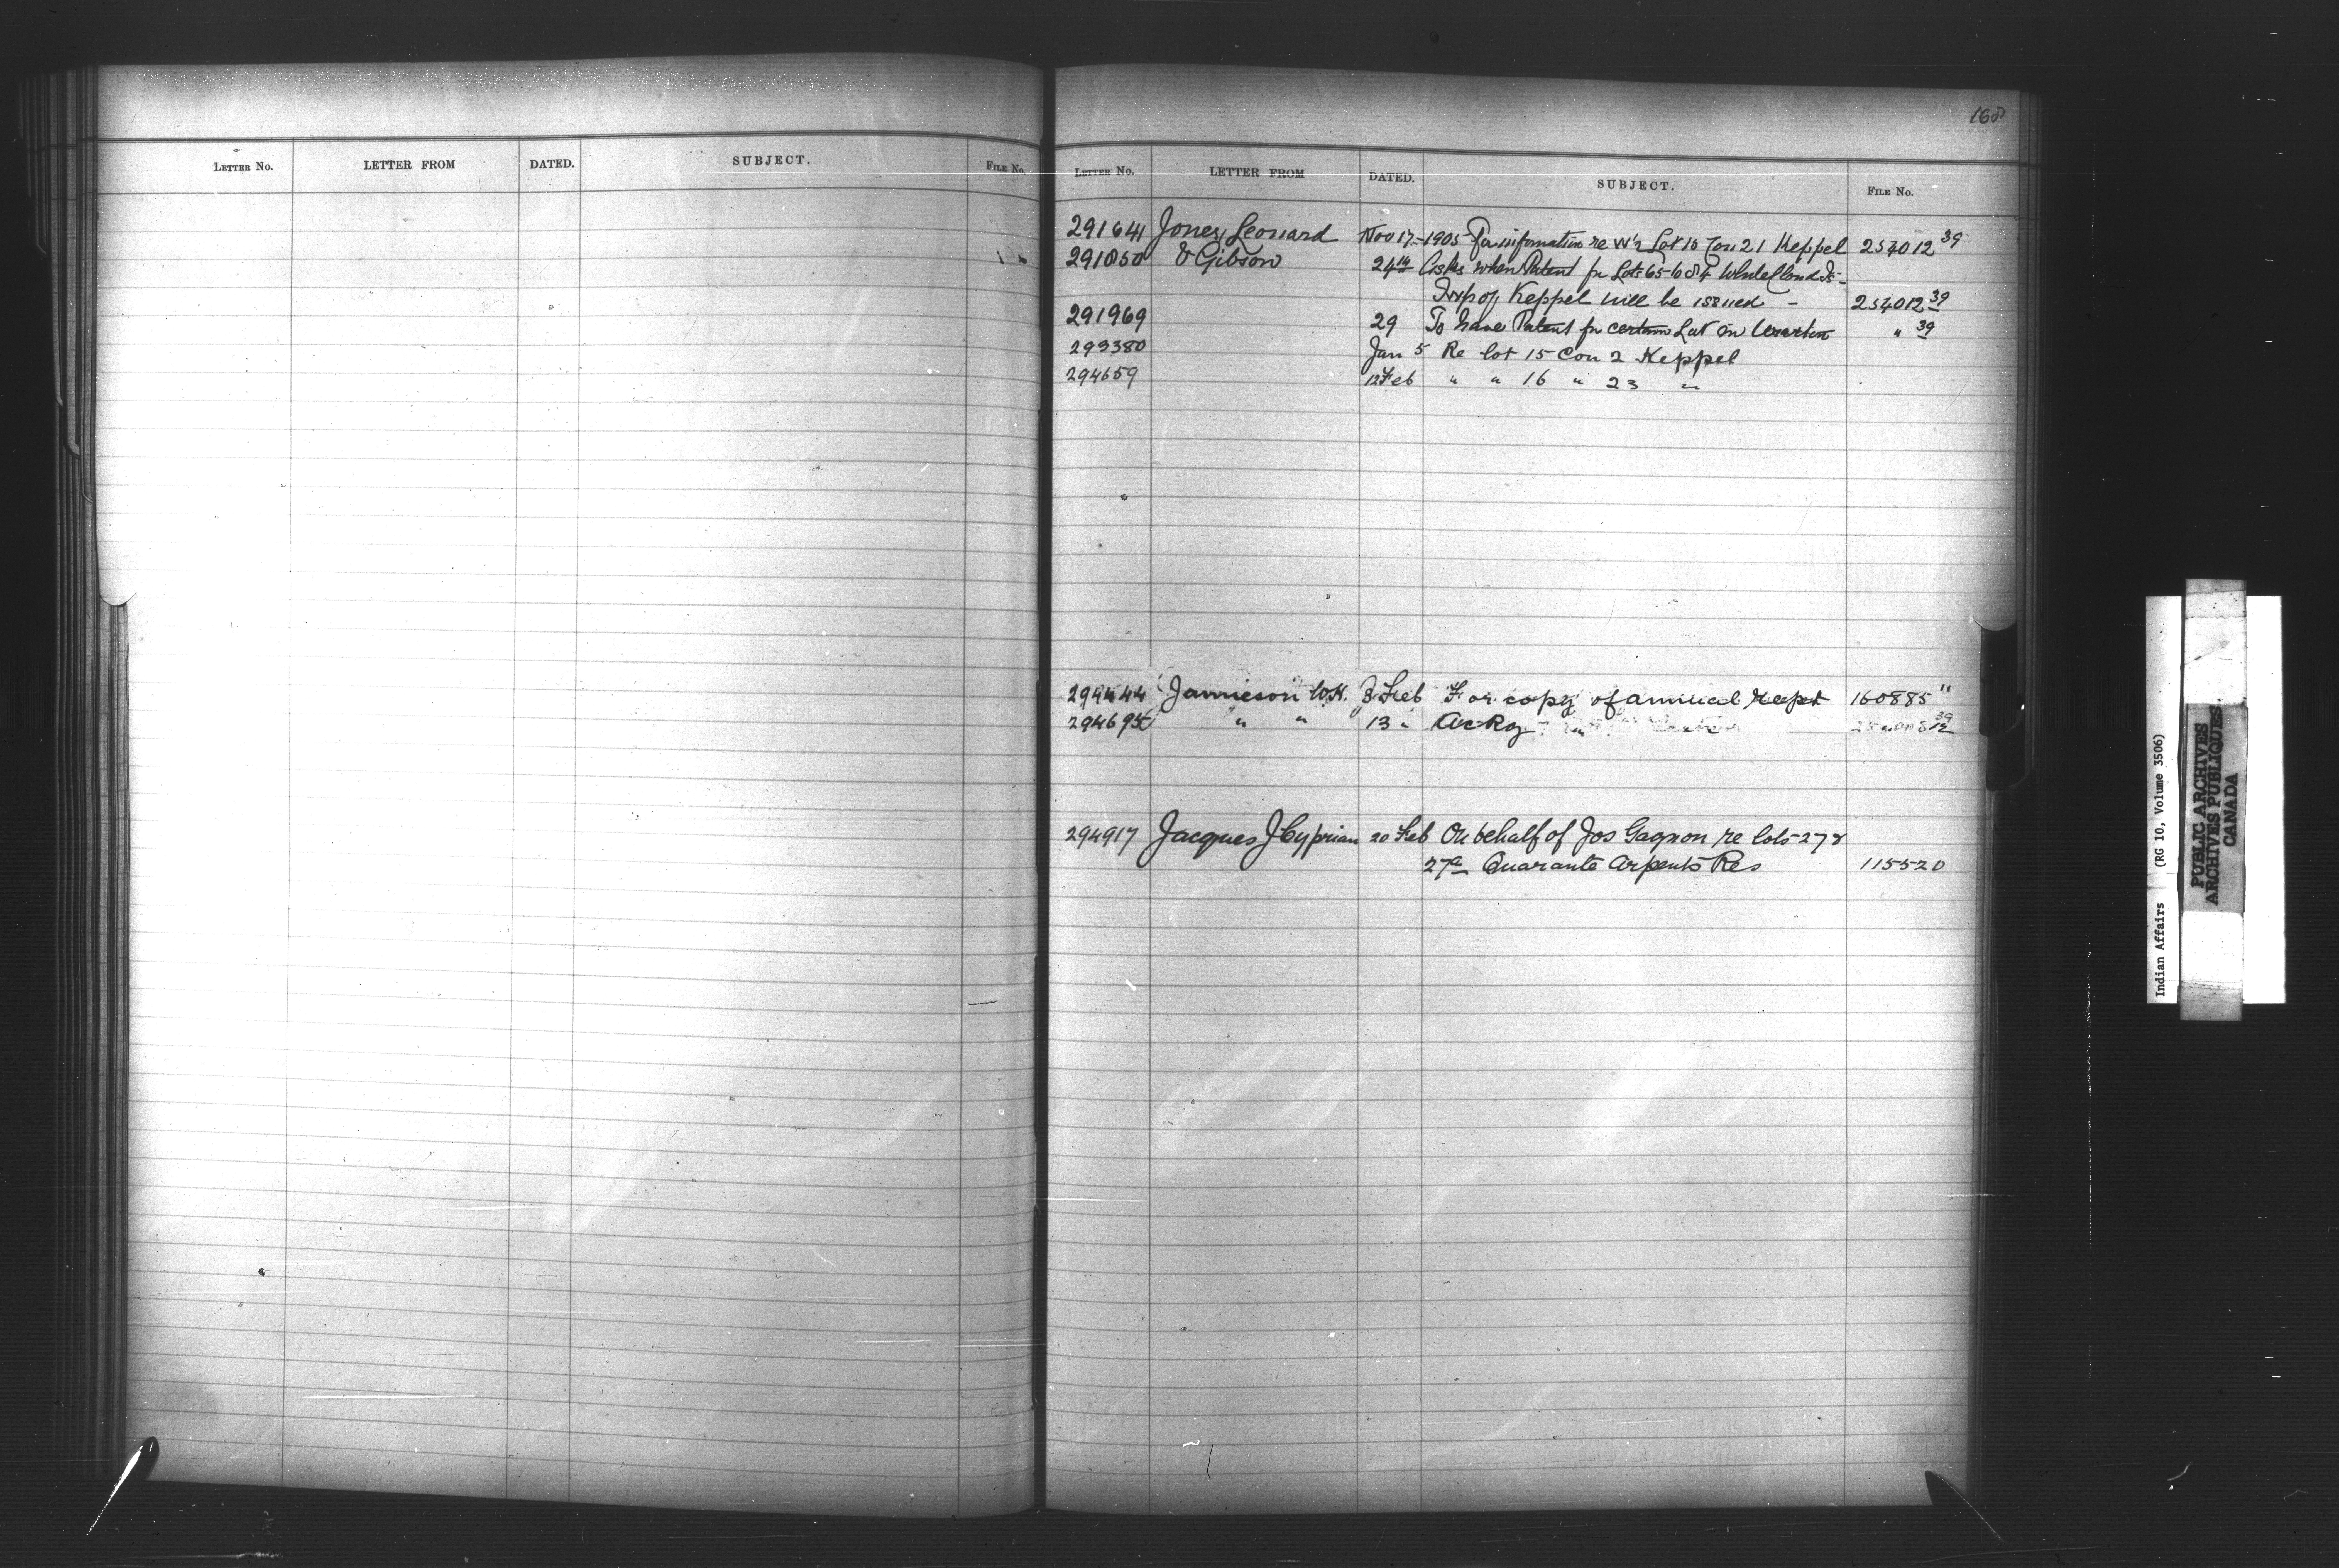 168
LETTER NO. LETTER FROM DATED. SUBJECT. FILE NO.
LETTER NO. LETTER FROM DATED. SUBJECT. FILE NO.
291641 Jones, Leonard Nov 17- 1905 For information re Lot 15 Con 21 Keppel 254012 39
291850 & Gibson 24th Asks when Patent for Lots 65 & White Cloud Is-
Twp of Keppel will be issued - 254012 39
291969 29 To have Patent for certain Lot in Wiarton " 39
293380 Jan 5 Re lot 15 Con 2 Keppel
294659 12 Feb " " 16 " 23 "
294444 Jamieson W.H. 8 Feb For copy of annual Rept 160885 11
" " 13 " Ackg
294917 Jacques J Cyprian 20 Feb On behalf of Jos Gagnon re lots 27 &
27a Quarante Arpents Res 115520
Indian Affairs (RG 10, Volume 3506)
PUBLIC ARCHIVES
ARCHIVES PUBLIQUES
CANADA